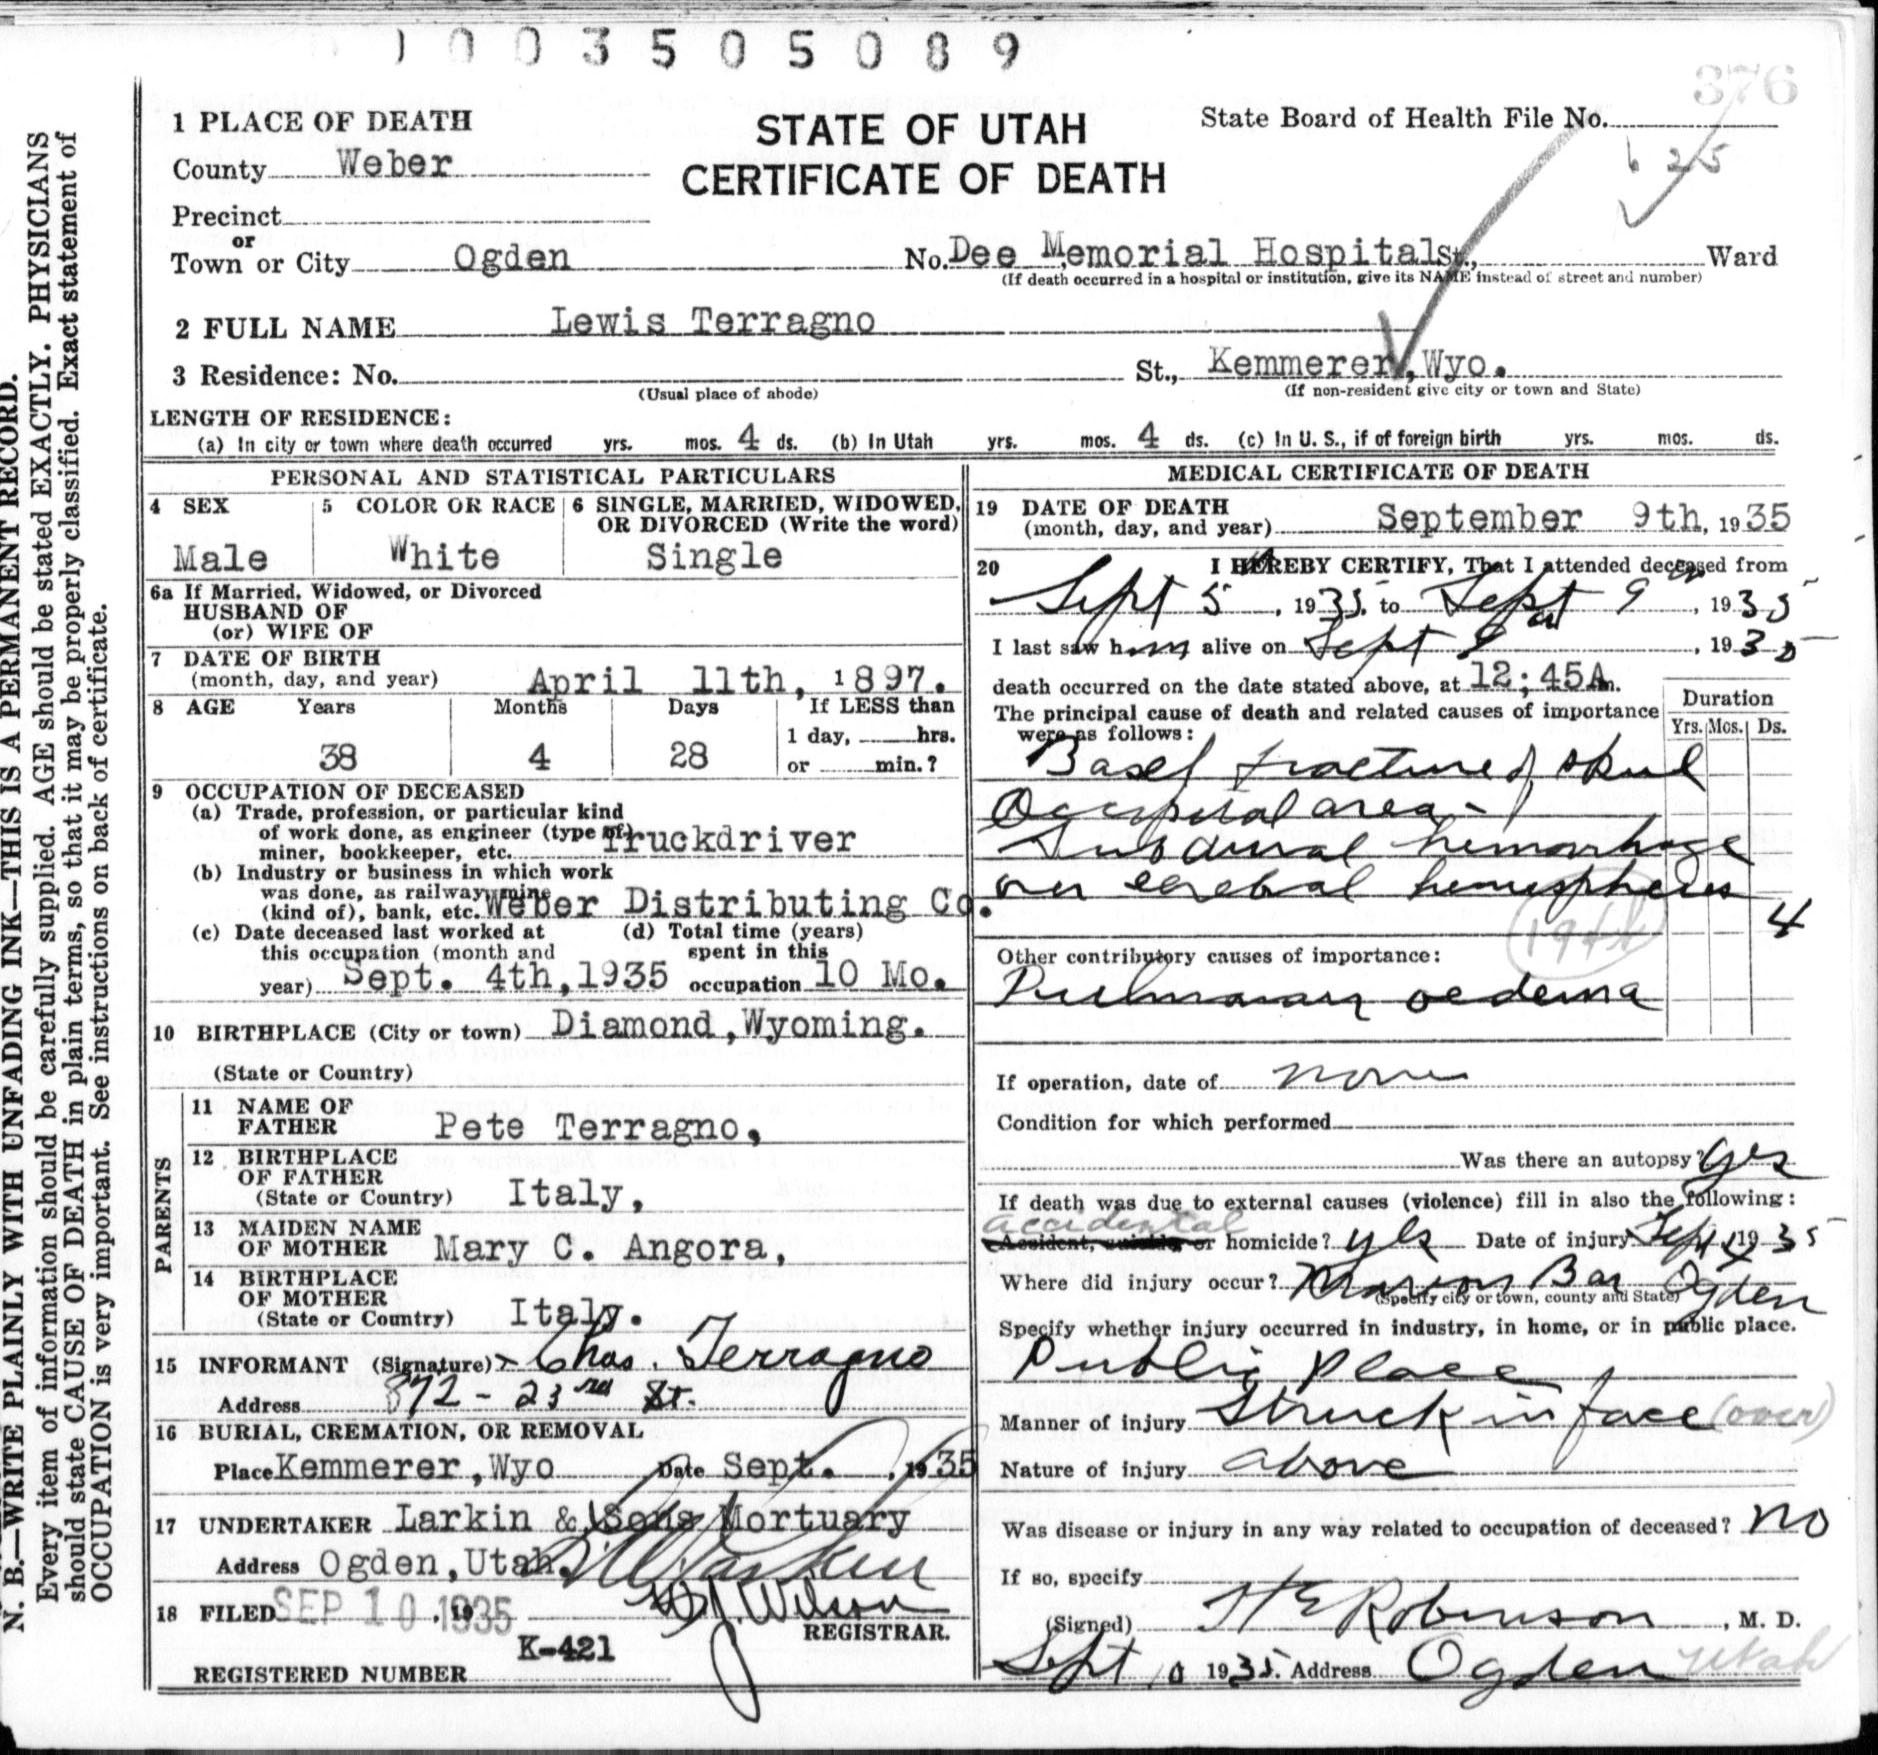 1003505089
376
1 PLACE OF DEATH
STATE OF UTAH
CERTIFICATE OF DEATH
State Board of Health File No.
County Weber
Precinct
or
Town or City Ogden No. Dee Memorial Hospital St., Ward
(If death occurred in a hospital or institution, give its NAME instead of street and number)
2 FULL NAME Lewis Terragno
3 Residence: No. St., Kemmerer, Wyo.
(Usual place of abode) (If non-resident give city or town and State)
LENGTH OF RESIDENCE:
(a) In city or town where death occurred yrs. mos. 4 ds. (b) In Utah yrs. mos. 4 ds. (c) In U. S., if of foreign birth yrs. mos. ds.
PERSONAL AND STATISTICAL PARTICULARS
4 SEX 5 COLOR OR RACE 6 SINGLE, MARRIED, WIDOWED,
OR DIVORCED (Write the word)
Male White Single
6a If Married, Widowed, or Divorced
HUSBAND OF
(or) WIFE OF
7 DATE OF BIRTH
(month, day, and year) April 11th, 1897.
8 AGE Years Months Days If LESS than
1 day, hrs.
38 4 28 or min.?
9 OCCUPATION OF DECEASED
(a) Trade, profession, or particular kind
of work done, as engineer (type of)
miner, bookkeeper, etc. Truckdriver
(b) Industry or business in which work
was done, as railway, mine
(kind of), bank, etc. Weber Distributing Co.
(c) Date deceased last worked at (d) Total time (years)
this occupation (month and spent in this
year) Sept. 4th, 1935 occupation 10 Mo.
10 BIRTHPLACE (City or town) Diamond, Wyoming.
(State or Country)
PARENTS
11 NAME OF
FATHER Pete Terragno,
12 BIRTHPLACE
OF FATHER
(State or Country) Italy,
13 MAIDEN NAME
OF MOTHER Mary C. Angora,
14 BIRTHPLACE
OF MOTHER
(State or Country) Italy.
15 INFORMANT (Signature) x Chas. Terragno
Address 872 - 23rd St.
16 BURIAL, CREMATION, OR REMOVAL
Place Kemmerer, Wyo Date Sept. , 1935
17 UNDERTAKER Larkin & Sons Mortuary
Address Ogden, Utah.
18 FILED SEP 10 1935 Wilson
REGISTRAR.
K-421
REGISTERED NUMBER
MEDICAL CERTIFICATE OF DEATH
19 DATE OF DEATH
(month, day, and year) September 9th, 1935
20 I HEREBY CERTIFY, That I attended deceased from
Sept 5, 1935, to Sept 9, 1935
I last saw him alive on Sept 9, 1935
death occurred on the date stated above, at 12;45A m.
The principal cause of death and related causes of importance
were as follows:
Duration
Yrs. Mos. Ds.
Basel fracture of skul
Occipital area -
Subdural hemorrhage
over cerebral hemispheres
4
Other contributory causes of importance:
Pulmonary oedema
If operation, date of none
Condition for which performed
Was there an autopsy? yes
If death was due to external causes (violence) fill in also the following:
accidental
Accident, suicide or homicide? yes Date of injury Sept 4, 1935
Where did injury occur? Marion Bar Ogden
(Specify city or town, county and State)
Specify whether injury occurred in industry, in home, or in public place.
Public Place
Manner of injury Struck in face (over)
Nature of injury above
Was disease or injury in any way related to occupation of deceased? No
If so, specify
(Signed) H E Robinson, M. D.
Sept 10 1935. Address Ogden Utah
N. B.—WRITE PLAINLY WITH UNFADING INK—THIS IS A PERMANENT RECORD.
Every item of information should be carefully supplied. AGE should be stated EXACTLY. PHYSICIANS
should state CAUSE OF DEATH in plain terms, so that it may be properly classified. Exact statement of
OCCUPATION is very important. See instructions on back of certificate.